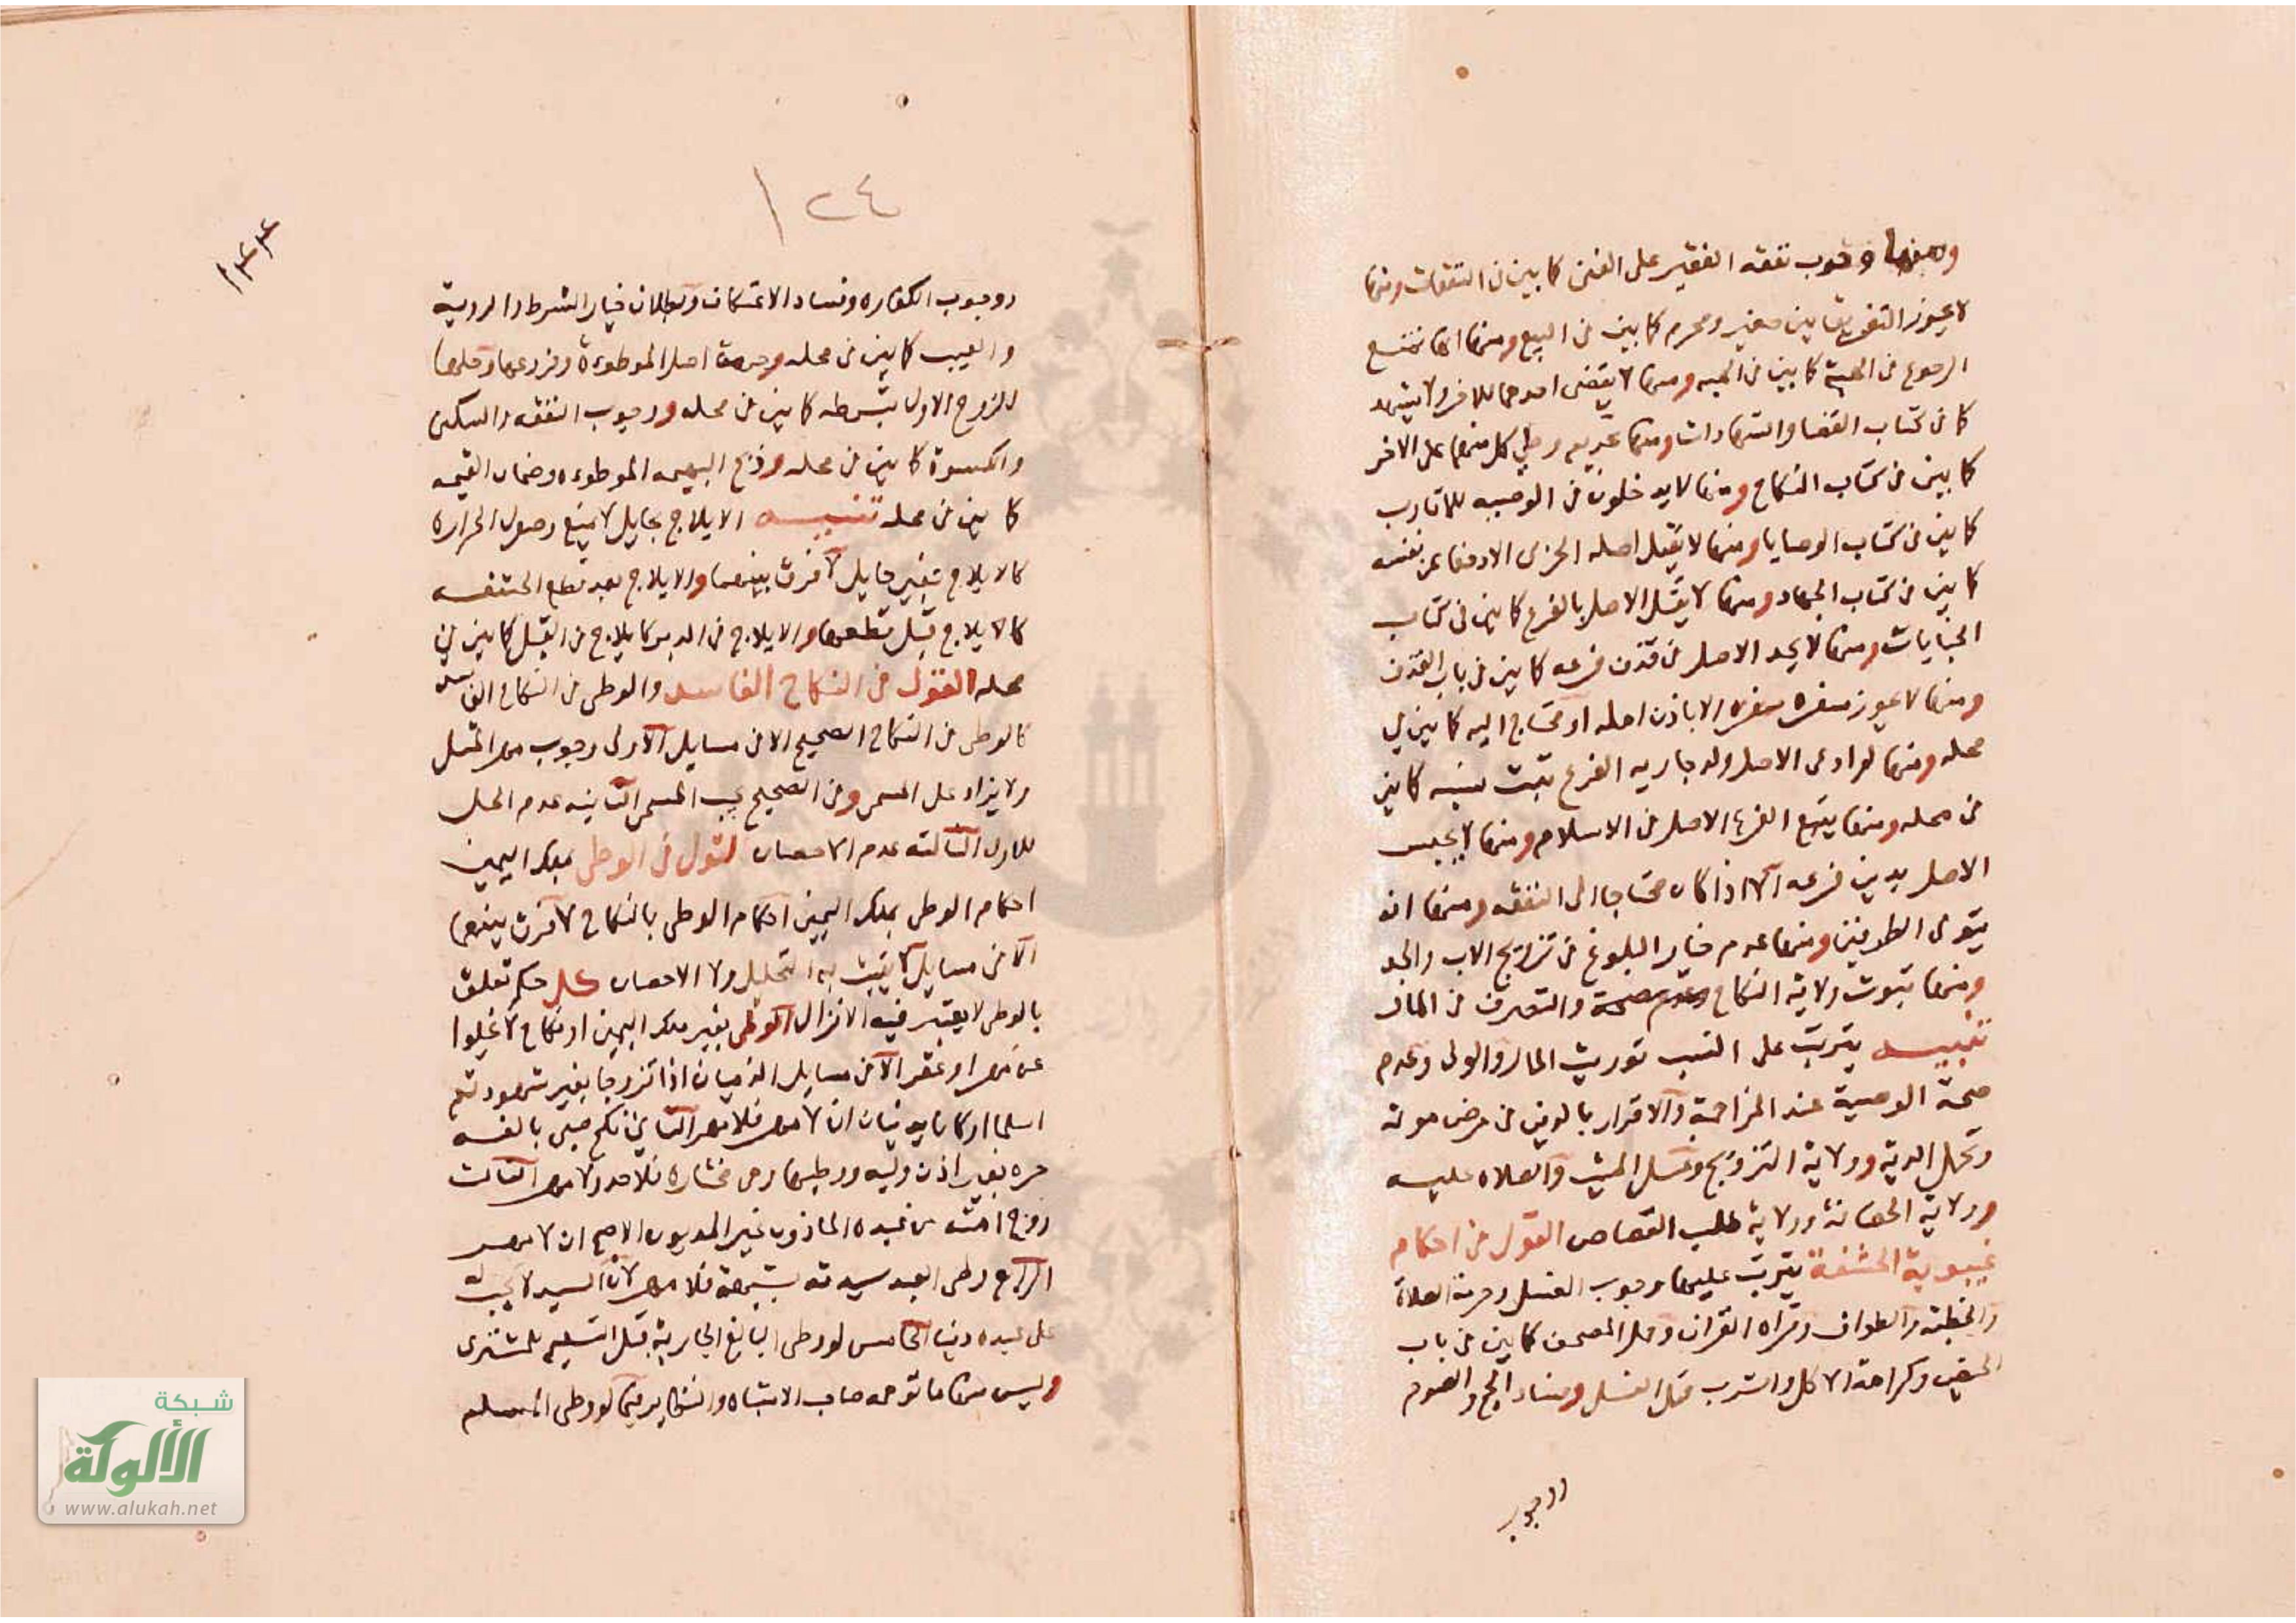 ومنها وجوب نفقه الفقير على الغنى كما بين فى النفقات ومنها
لا يجوز التفريق بين صغير ومحرم كما بين فى البيع ومنها انها تمنع
الرجوع فى الهبة كما بين فى الهبه ومنها لا يقضى احدهما للاخر ولا يشهد
كما فى كتاب القضا والشهادات ومنها تحريم وطى كل منهما على الاخر
كما بين فى كتاب النكاح ومنها لا يدخلون فى الوصيه للاقارب
كما بين فى كتاب الوصايا ومنها لا يقتل اصله الحربى الا دفعا عن نفسه
كما بين فى كتاب الجهاد ومنها لا يقتل الاصل بالفرع كما بين فى كتاب
الجنايات ومنها لا يحد الاصل فى قذف فرعه كما بين فى باب القذف
ومنها لا يجوز سفره الا باذن اصله او محتاج اليه كما بين فى
محله ومنها لو ادعى الاصل ولد جاريه الفرع ثبت نسبه كما بين
فى محله ومنها يتبع الفرع الاصل فى الاسلام ومنها لا يحبس
الاصل بدين فرعه الا اذا كان محتاجا الى النفقه ومنها انه
يتولى الطرفين ومنها عدم خيار البلوغ فى تزويج الاب والجد
ومنها ثبوت ولاية النكاح والتصرف فى المال
تنبيـــه يترتب على النسب توريث المال والولى وعدم
صحة الوصية عند المزاحمة والاقرار بالدين فى مرض موته
وتحمل الدية وولاية التزويج وغسل الميت والصلاه عليه
وولاية الحضانة وولاية طلب القصاص القول فى احكام
غيبوبة الحشفة يترتب عليها وجوب الغسل وحرمة الصلاة
والخطبة والطواف وقراه القران وحمل المصحف كما بين فى باب
الحيض وكراهة الاكل والشرب قبل الغسل وفساد الحج والصوم
ووجوب
١٢٤
١٢٤
ووجوب الكفاره وفساد الاعتكاف وبطلان خيار الشرط والروية
والعيب كما بين فى محله وحرمة اصل الموطوءة وفروعها وحلها
للزوج الاول بشرطه كما بين فى محله ووجوب النفقه والسكنى
والكسوة كما بين فى محله وذبح البهيمه الموطوءه وضمان القيمه
كما بين فى محله تنبيـــه الايلاج بحايل لا يمنع وصول الحراره
كالايلاج بغير حايل لا فرق بينهما والايلاج بعد قطع الحشفه
كالايلاج قبل قطعها والايلاج فى الدبر كايلاج فى القبل كما بين فى
محله القول فى النكاح الفاسد والوطى فى النكاح الفاسد
كالوطى فى النكاح الصحيح الا فى مسايل الاولى وجوب مهر المثل
ولا يزاد على المسمى وفى الصحيح يجب المسمى الثانيه عدم الحل
للاول الثالثه عدم الاحصان القول فى الوطى بملك اليمين
احكام الوطى بملك اليمين احكام الوطى بالنكاح لا فرق بينهما
الا فى مسايل لا يثبت به التحليل ولا الاحصان كل حكم تعلق
بالوطى لا يعتبر فيه الانزال الوطى بغير ملك اليمين او نكاح لا يخلوا
عن مهر او عقر الا فى مسايل الذميان اذا تزوجا بغير شهود ثم
اسلما او كانا يدينان ان لا مهر فلا مهر الثانى نكح صبى بالغه
حره بغير اذن وليه ووطيها وهى مختاره فلا حد ولا مهر الثالث
زوج امته من عبده الماذون غير المديون الاصح ان لا مهر
الرابع وطى العبد سيدته بشبهة فلا مهر لان السيد لا يجب له
على عبده دينا الخامس لو وطى البايع الجارية قبل التسليم للمشترى
وليس منها ما توهمه صاحب الاشباه والنظاير فيما لو وطى المسلم
شبكة
الألوكة
www.alukah.net